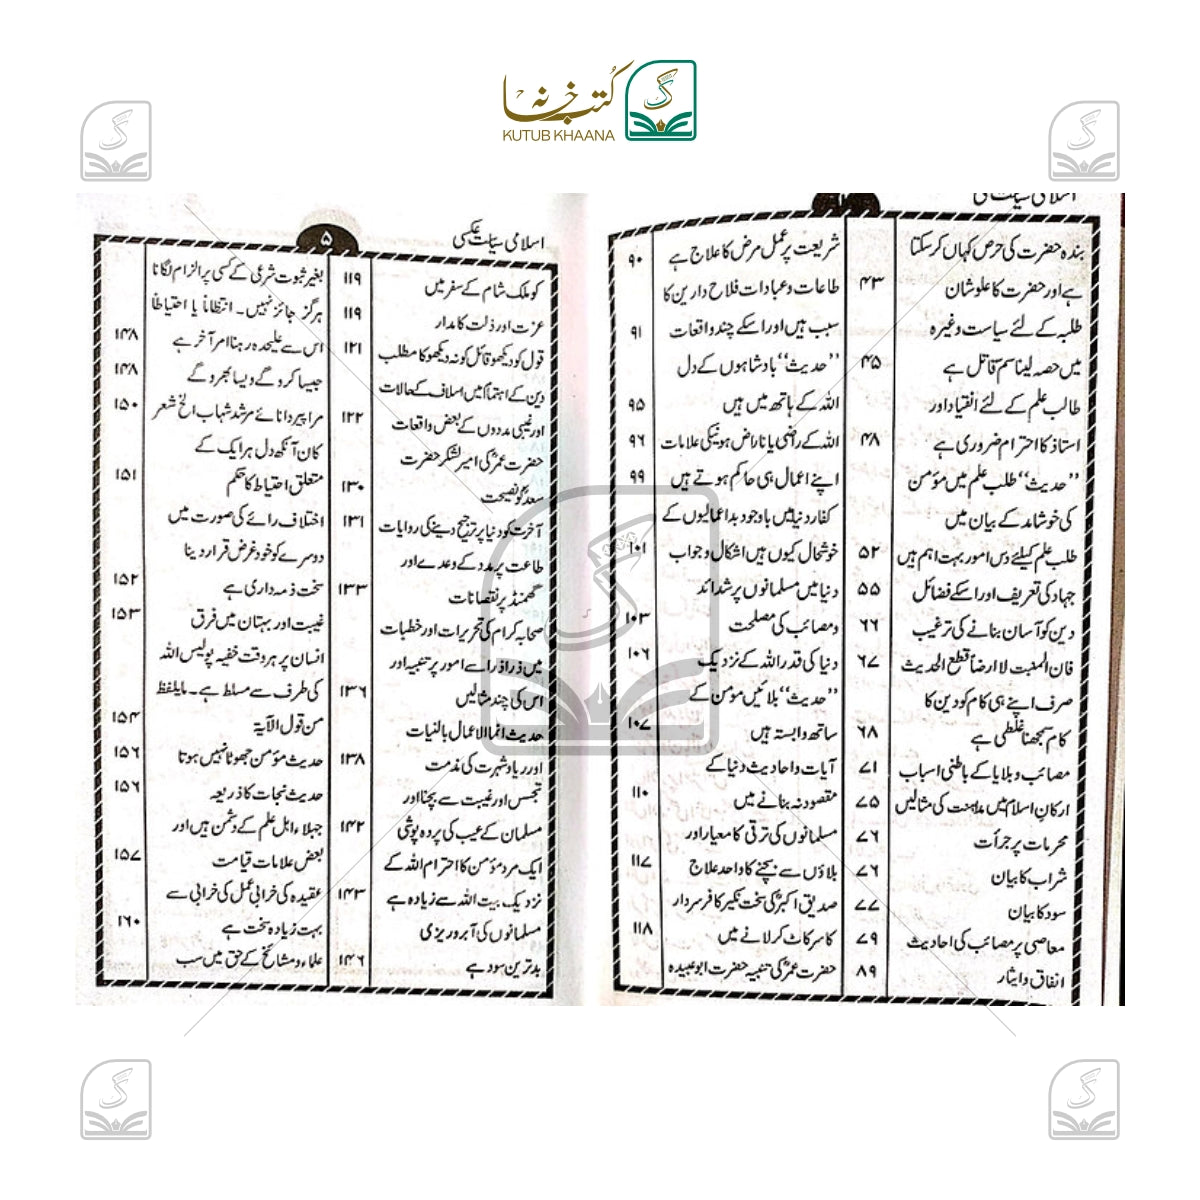 کتب خانہ
KUTUB KHAANA
اسلامی سیاست عکسی
بندہ حضرت کی حرص کہاں کرسکتا
ہے اور حضرت کا علو شان ۴۳
طلبہ کے لئے سیاست وغیرہ
میں حصہ لینا سم قاتل ہے ۴۵
طالب علم کے لئے انقیاد اور
استاذ کا احترام ضروری ہے ۴۸
’’حدیث‘‘ طلب علم میں مؤمن
کی خوشامد کے بیان میں
طلب علم کیلئے دس امور بہت اہم ہیں ۵۲
جہاد کی تعریف اور اسکے فضائل ۵۵
دین کو آسان بنانے کی ترغیب ۶۶
فان المنبت لا ارضاً قطع الحدیث ۶۷
صرف اپنے ہی کام کو دین کا
کام سمجھنا غلطی ہے ۶۸
مصائب و بلایا کے باطنی اسباب ۷۱
ارکان اسلام میں مداہنت کی مثالیں ۷۵
محرمات پر جرأت ۷۶
شراب کا بیان ۷۶
سود کا بیان ۷۷
معاصی پر مصائب کی احادیث ۷۹
انفاق و ایثار ۸۹
شریعت پر عمل مرض کا علاج ہے ۹۰
طاعات و عبادات فلاح دارین کا
سبب ہیں اور اسکے چند واقعات ۹۱
’’حدیث‘‘ بادشاہوں کے دل
اللہ کے ہاتھ میں ہیں ۹۵
اللہ کے راضی یا ناراض ہونیکی علامات ۹۶
اپنے اعمال ہی حاکم ہوتے ہیں ۹۹
کفار دنیا میں باوجود بداعمالیوں کے
خوشحال کیوں ہیں اشکال و جواب ۱۰۱
دنیا میں مسلمانوں پر شدائد
و مصائب کی مصلحت ۱۰۳
دنیا کی قدر اللہ کے نزدیک ۱۰۶
’’حدیث‘‘ بلائیں مؤمن کے
ساتھ وابستہ ہیں ۱۰۷
آیات و احادیث دنیا کے
مقصود نہ بنانے میں ۱۱۰
مسلمانوں کی ترقی کا معیار اور
بلاؤں سے بچنے کا واحد علاج ۱۱۷
صدیق اکبرؓ کی سخت نکیر کافر سردار
کا سر کاٹ کر لانے میں ۱۱۸
حضرت عمرؓ کی تنبیہ حضرت ابوعبیدہ
۵
اسلامی سیاست عکسی
کو ملک شام کے سفر میں ۱۱۹
عزت اور ذلت کا مدار ۱۱۹
قول کو دیکھو قائل کو نہ دیکھو کا مطلب ۱۲۱
دین کے اہتمام میں اسلاف کے حالات
اور غیبی مددوں کے بعض واقعات ۱۲۲
حضرت عمرؓ کی امیر لشکر حضرت
سعدؓ کو نصیحت ۱۳۰
آخرت کو دنیا پر ترجیح دینے کی روایات ۱۳۱
طاعت پر مدد کے وعدے اور
گھمنڈ پر نقصانات ۱۳۳
صحابہ کرام کی تحریرات اور خطبات
میں ذرا ذرا سے امور پر تنبیہ اور
اس کی چند مثالیں ۱۳۶
حدیث انما الاعمال بالنیات
اور ریا و شہرت کی مذمت ۱۳۸
تجسس اور غیبت سے بچنا اور
مسلمان کے عیب کی پردہ پوشی ۱۴۲
ایک مرد مؤمن کا احترام اللہ کے
نزدیک بیت اللہ سے زیادہ ہے ۱۴۳
مسلمانوں کی آبروریزی
بدترین سود ہے ۱۴۶
بغیر ثبوت شرعی کے کسی پر الزام لگانا
ہرگز جائز نہیں۔ انتظاماً یا احتیاطاً
اس سے علیحدہ رہنا امر آخر ہے ۱۴۸
جیسا کروگے ویسا بھروگے ۱۴۸
مرا پیر دانائے مرشد شہاب الخ شعر ۱۵۰
کان آنکھ دل ہر ایک کے
متعلق احتیاط کا حکم ۱۵۱
اختلاف رائے کی صورت میں
دوسرے کو خود غرض قرار دینا
سخت ذمہ داری ہے ۱۵۲
غیبت اور بہتان میں فرق ۱۵۳
انسان پر ہر دقت خفیہ پولیس اللہ
کی طرف سے مسلط ہے۔ مایلفظ
من قول الآیۃ ۱۵۴
حدیث مؤمن جھوٹا نہیں ہوتا ۱۵۶
حدیث نجات کا ذریعہ ۱۵۶
جہلاء اہل علم کے دشمن ہیں اور
بعض علامات قیامت ۱۵۷
عقیدہ کی خرابی عمل کی خرابی سے
بہت زیادہ سخت ہے ۱۶۰
علماء و مشائخ کے حق میں سب